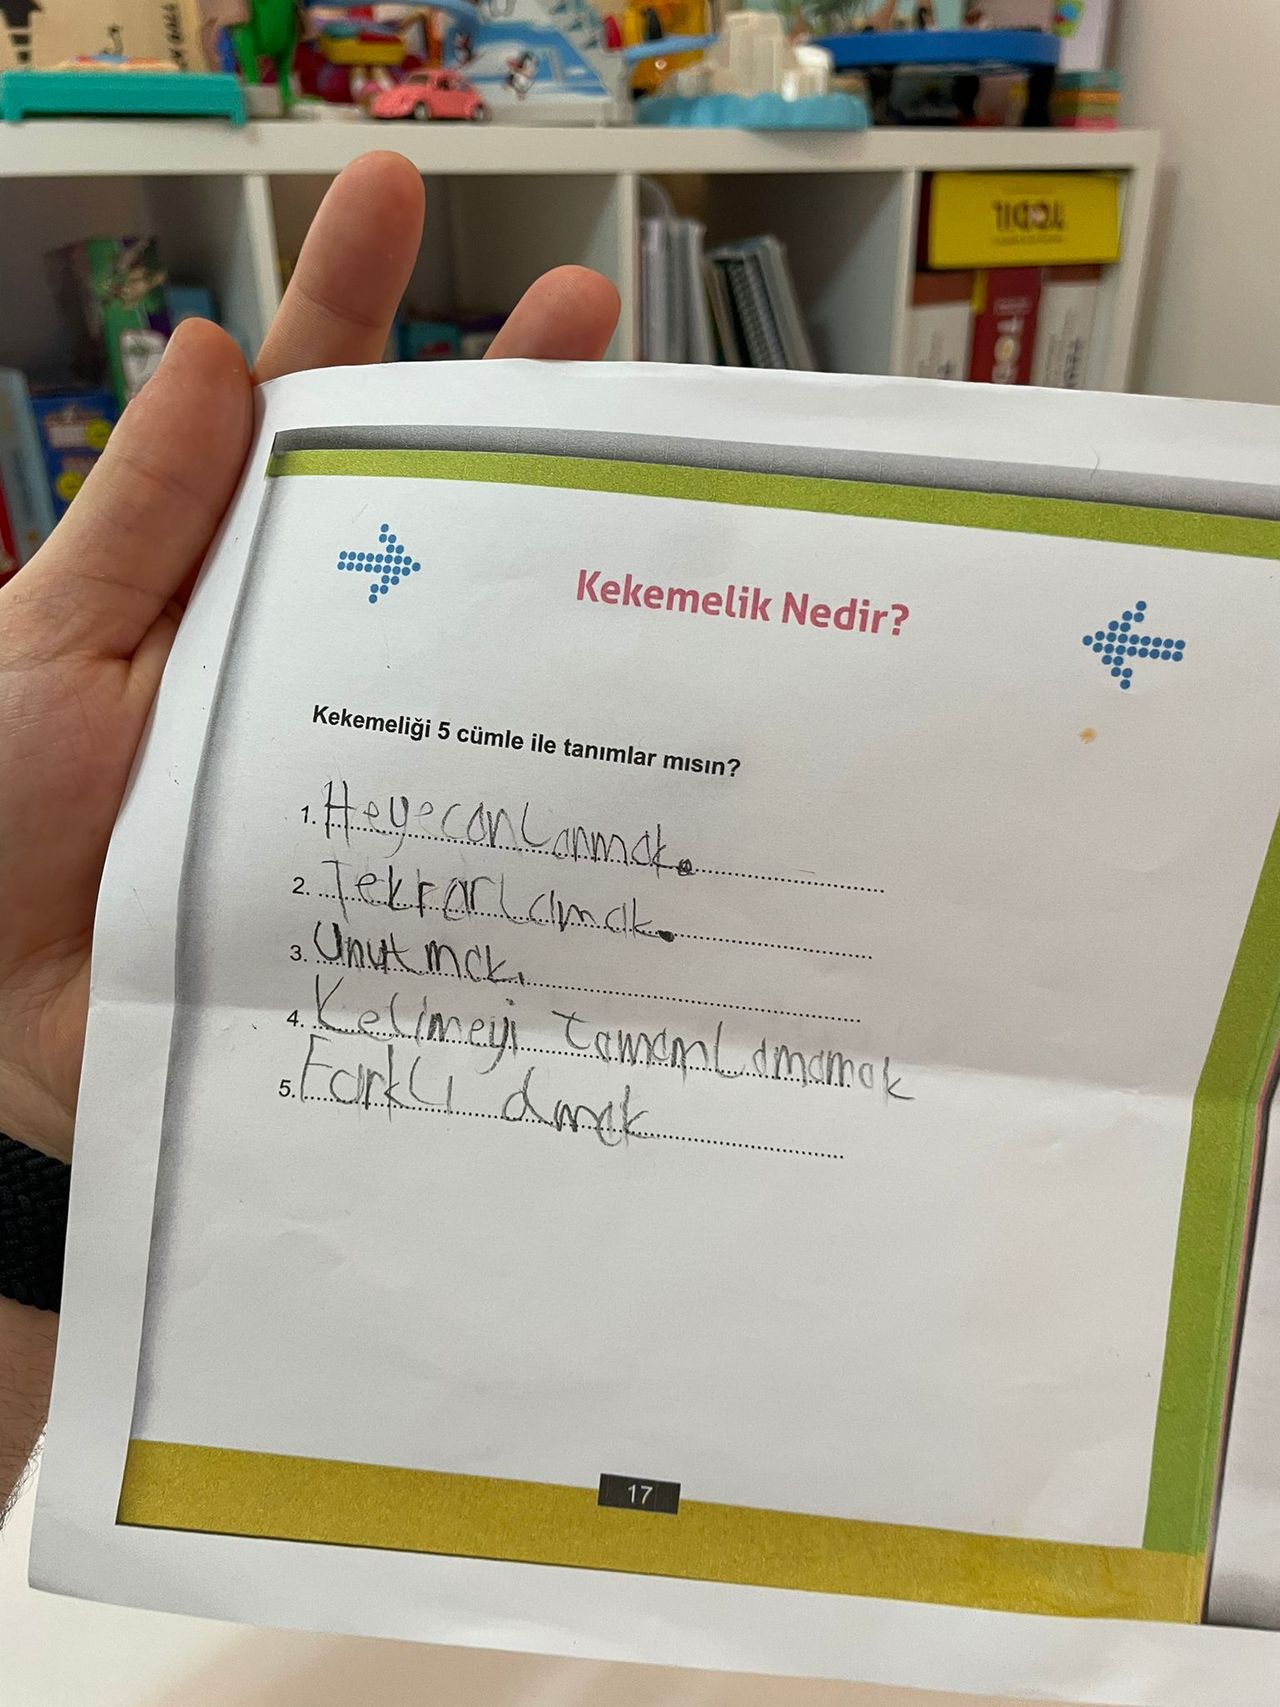 TODİL
Kekemelik Nedir?
Kekemeliği 5 cümle ile tanımlar mısın?
1. Heyecanlanmak.
2. Tekrarlamak.
3. Unutmak.
4. Kelimeyi tamamlamamak
5. Farklı
17